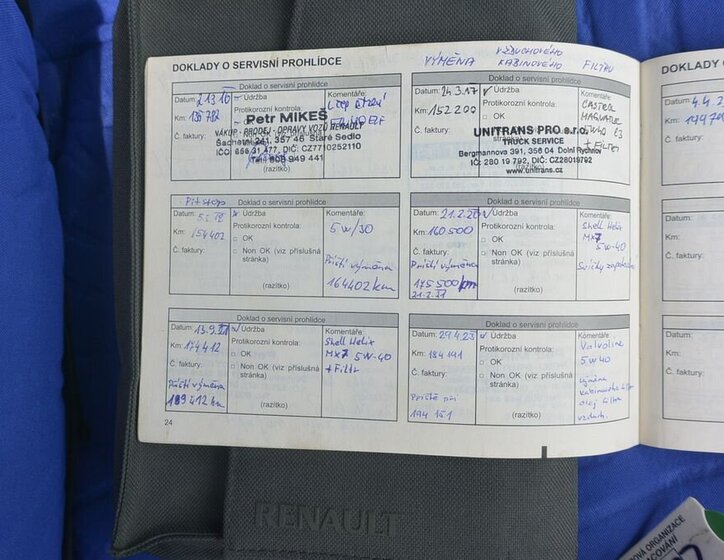 DOKLADY O SERVISNÍ PROHLÍDCE
VÝMĚNA VZDUCHOVÉHO
KABINOVÉHO FILTRU
Doklad o servisní prohlídce
Datum: 2.3.16 Údržba Komentáře:
Km: 136 782 Protikorozní kontrola:
Č. faktury:
Petr MIKEŠ
VÝKUP - PRODEJ - OPRAVY VOZŮ RENAULT
Šachetní 241, 357 46 Staré Sedlo
IČO: 656 31 477, DIČ: CZ7710252110
Doklad o servisní prohlídce
Datum: 24.3.17 Údržba Komentáře:
Km: 152 200 Protikorozní kontrola: CASTROL
MAGNATEC
5W40 C3
+ FILTR
Č. faktury:
UNITRANS PRO s.r.o.
TRUCK SERVICE
Bergmannova 391, 356 04 Dolní Rychnov
IČ: 280 19 792, DIČ: CZ28019792
www.unitrans.cz
Doklad o servisní prohlídce
Pitstop
Datum: Údržba Komentáře:
Km: 154402 Protikorozní kontrola: 5W/30
OK
Č. faktury: Non OK (viz příslušná stránka)
Příští výměna
164402 km
(razítko)
Doklad o servisní prohlídce
Datum: 21.2.20 Údržba Komentáře:
Km: 160 500 Protikorozní kontrola: Shell Helix
OK MX7
5W-40
Č. faktury: Non OK (viz příslušná stránka)
Příští výměna Svíčky zapalování
175 500 km
21.2.21
(razítko)
Doklad o servisní prohlídce
Datum: 13.9.21 Údržba Komentáře:
Km: 174412 Protikorozní kontrola: Shell Helix
OK MX7 5W-40
+ Filtr
Č. faktury: Non OK (viz příslušná stránka)
Příští výměna
189 412 km
(razítko)
Doklad o servisní prohlídce
Datum: 29.4.23 Údržba Komentáře:
Km: 184 141 Protikorozní kontrola: Valvoline
OK 5W40
Č. faktury: Non OK (viz příslušná stránka)
výměna
kabinového filtru
olej filtr
vzduch.
Příště při
194 141
(razítko)
24
DOKLADY O
Datum: 4.4.2
Km:
Č. faktury:
Datum:
Km:
Č. faktury:
Datum:
Km:
Č. faktury:
RENAULT
OVA ORGANIZACE